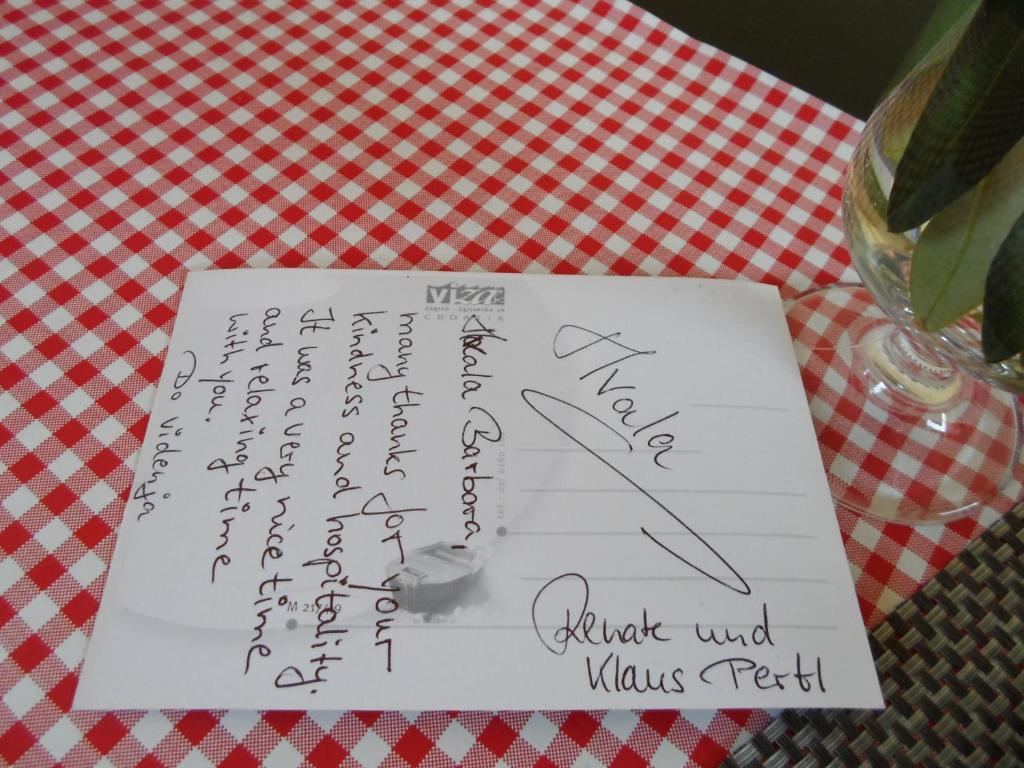 Viza
Zagreb - Ugljanska 26
CROATIA
Hvala Barbara,
many thanks for your
kindness and hospitality.
It was a very nice time
and relaxing time
with you.
Do videnja
M 217/09
Hvala
Renate und
Klaus Pertl